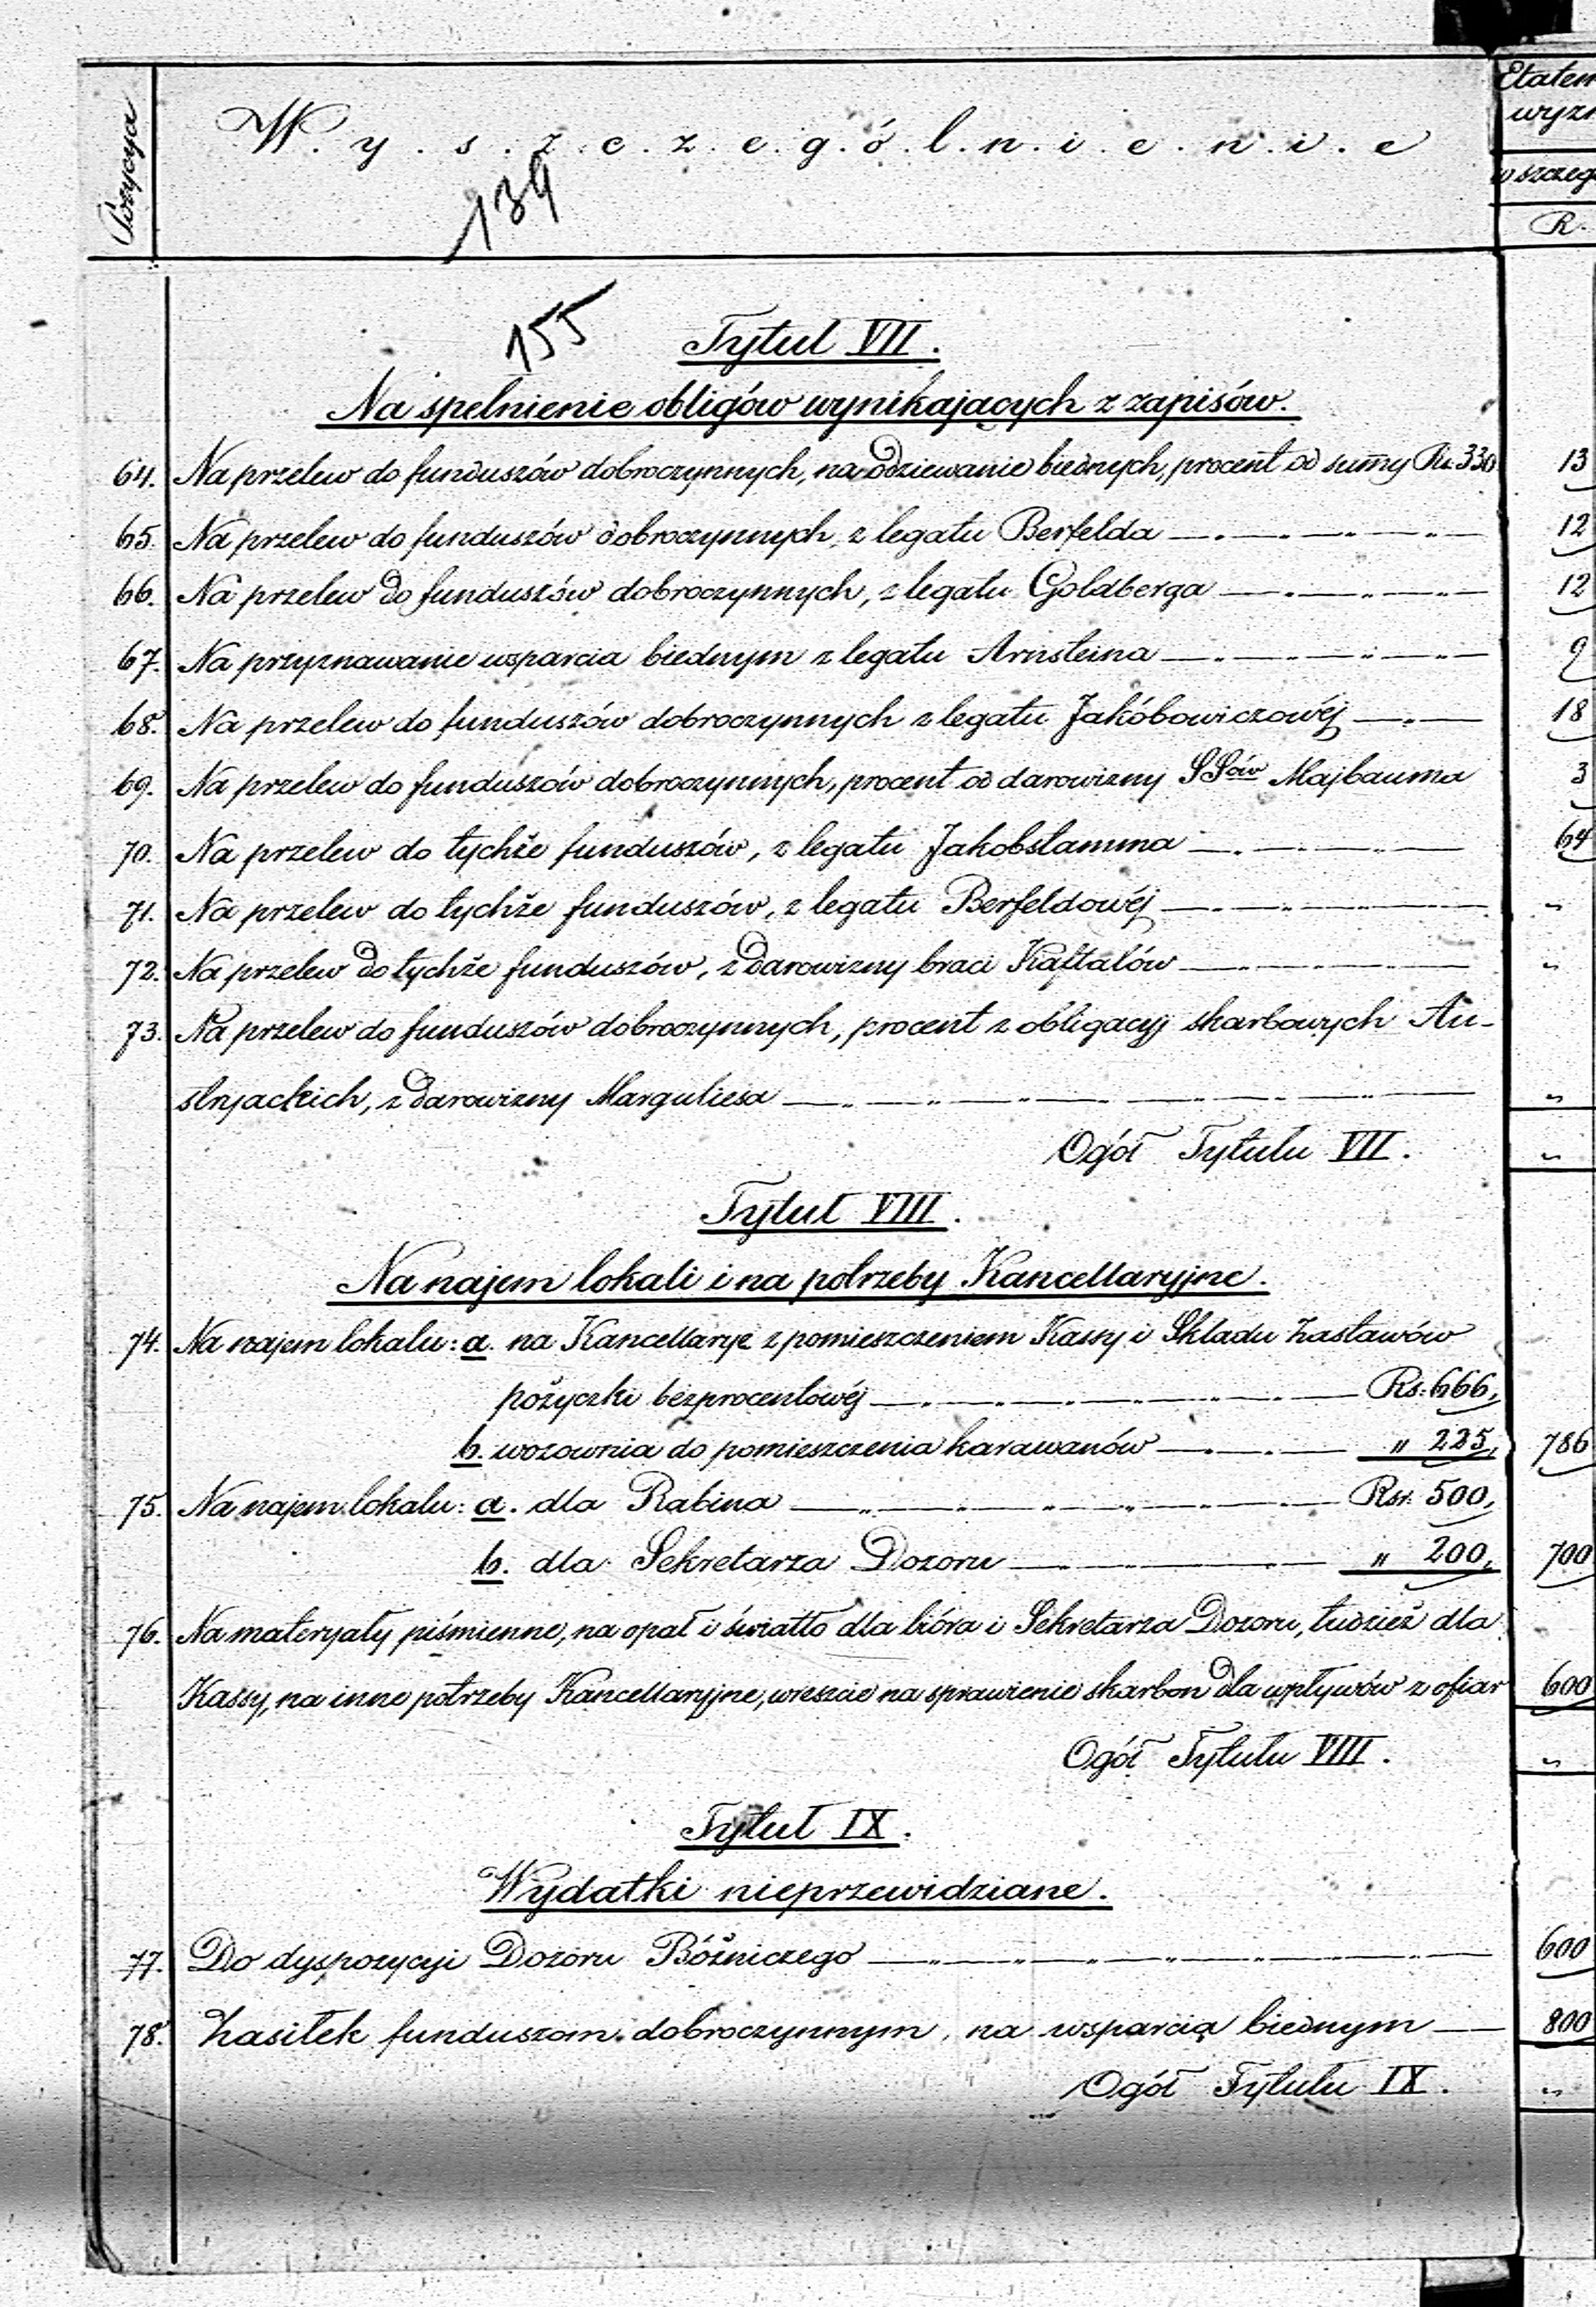 Pozycya
W.y.s.z.c.z.e.g.ó.l.n.i.e.n.i.e
Etatem
wyzn
w szczeg
R.
139
155
Tytuł VII.
Na spełnienie obligów wynikających z zapisów.
64. Na przelew do funduszów dobroczynnych, na odziewanie biednych, procent od summy Rs. 330 13
65. Na przelew do funduszów dobroczynnych, z legatu Berfelda 12
66. Na przelew do funduszów dobroczynnych, z legatu Goldberga 12
67. Na przyznawanie wsparcia biednym z legatu Arnsteina 9
68. Na przelew do funduszów dobroczynnych z legatu Jakóbowiczowéj 18
69. Na przelew do funduszów dobroczynnych, procent od darowizny SSów Majbauma 3
70. Na przelew do tychże funduszów, z legatu Jakobstamma 64
71. Na przelew do tychże funduszów, z legatu Berfeldowéj "
72. Na przelew do tychże funduszów, z darowizny braci Kaftalów "
73. Na przelew do funduszów dobroczynnych, procent z obligacyj skarbowych Au-
stryackich, z darowizny Marguliesa "
Ogół Tytułu VII. "
Tytuł VIII.
Na najem lokali i na potrzeby Kancellaryjne.
74. Na najem lokalu: a. na Kancellarye z pomieszczeniem Kassy i Składu Zastawów
pożyczki bezprocentowéj Rs. 666,
b. wozownia do pomieszczenia karawanów " 225, 786
75. Na najem lokalu: a. dla Rabina Rsr. 500,
b. dla Sekretarza Dozoru " 200, 700
76. Na materyały piśmienne, na opał i światło dla bióra i Sekretarza Dozoru, tudzież dla
Kassy, na inne potrzeby Kancellaryjne, wreszcie na sprawienie skarbon dla wpływów z ofiar 600
Ogół Tytułu VIII. "
Tytuł IX.
Wydatki nieprzewidziane.
77. Do dyspozycyi Dozoru Bóżniczego 600
78. Zasiłek funduszom dobroczynnym, na wsparcia biednym 800
Ogół Tytułu IX. "